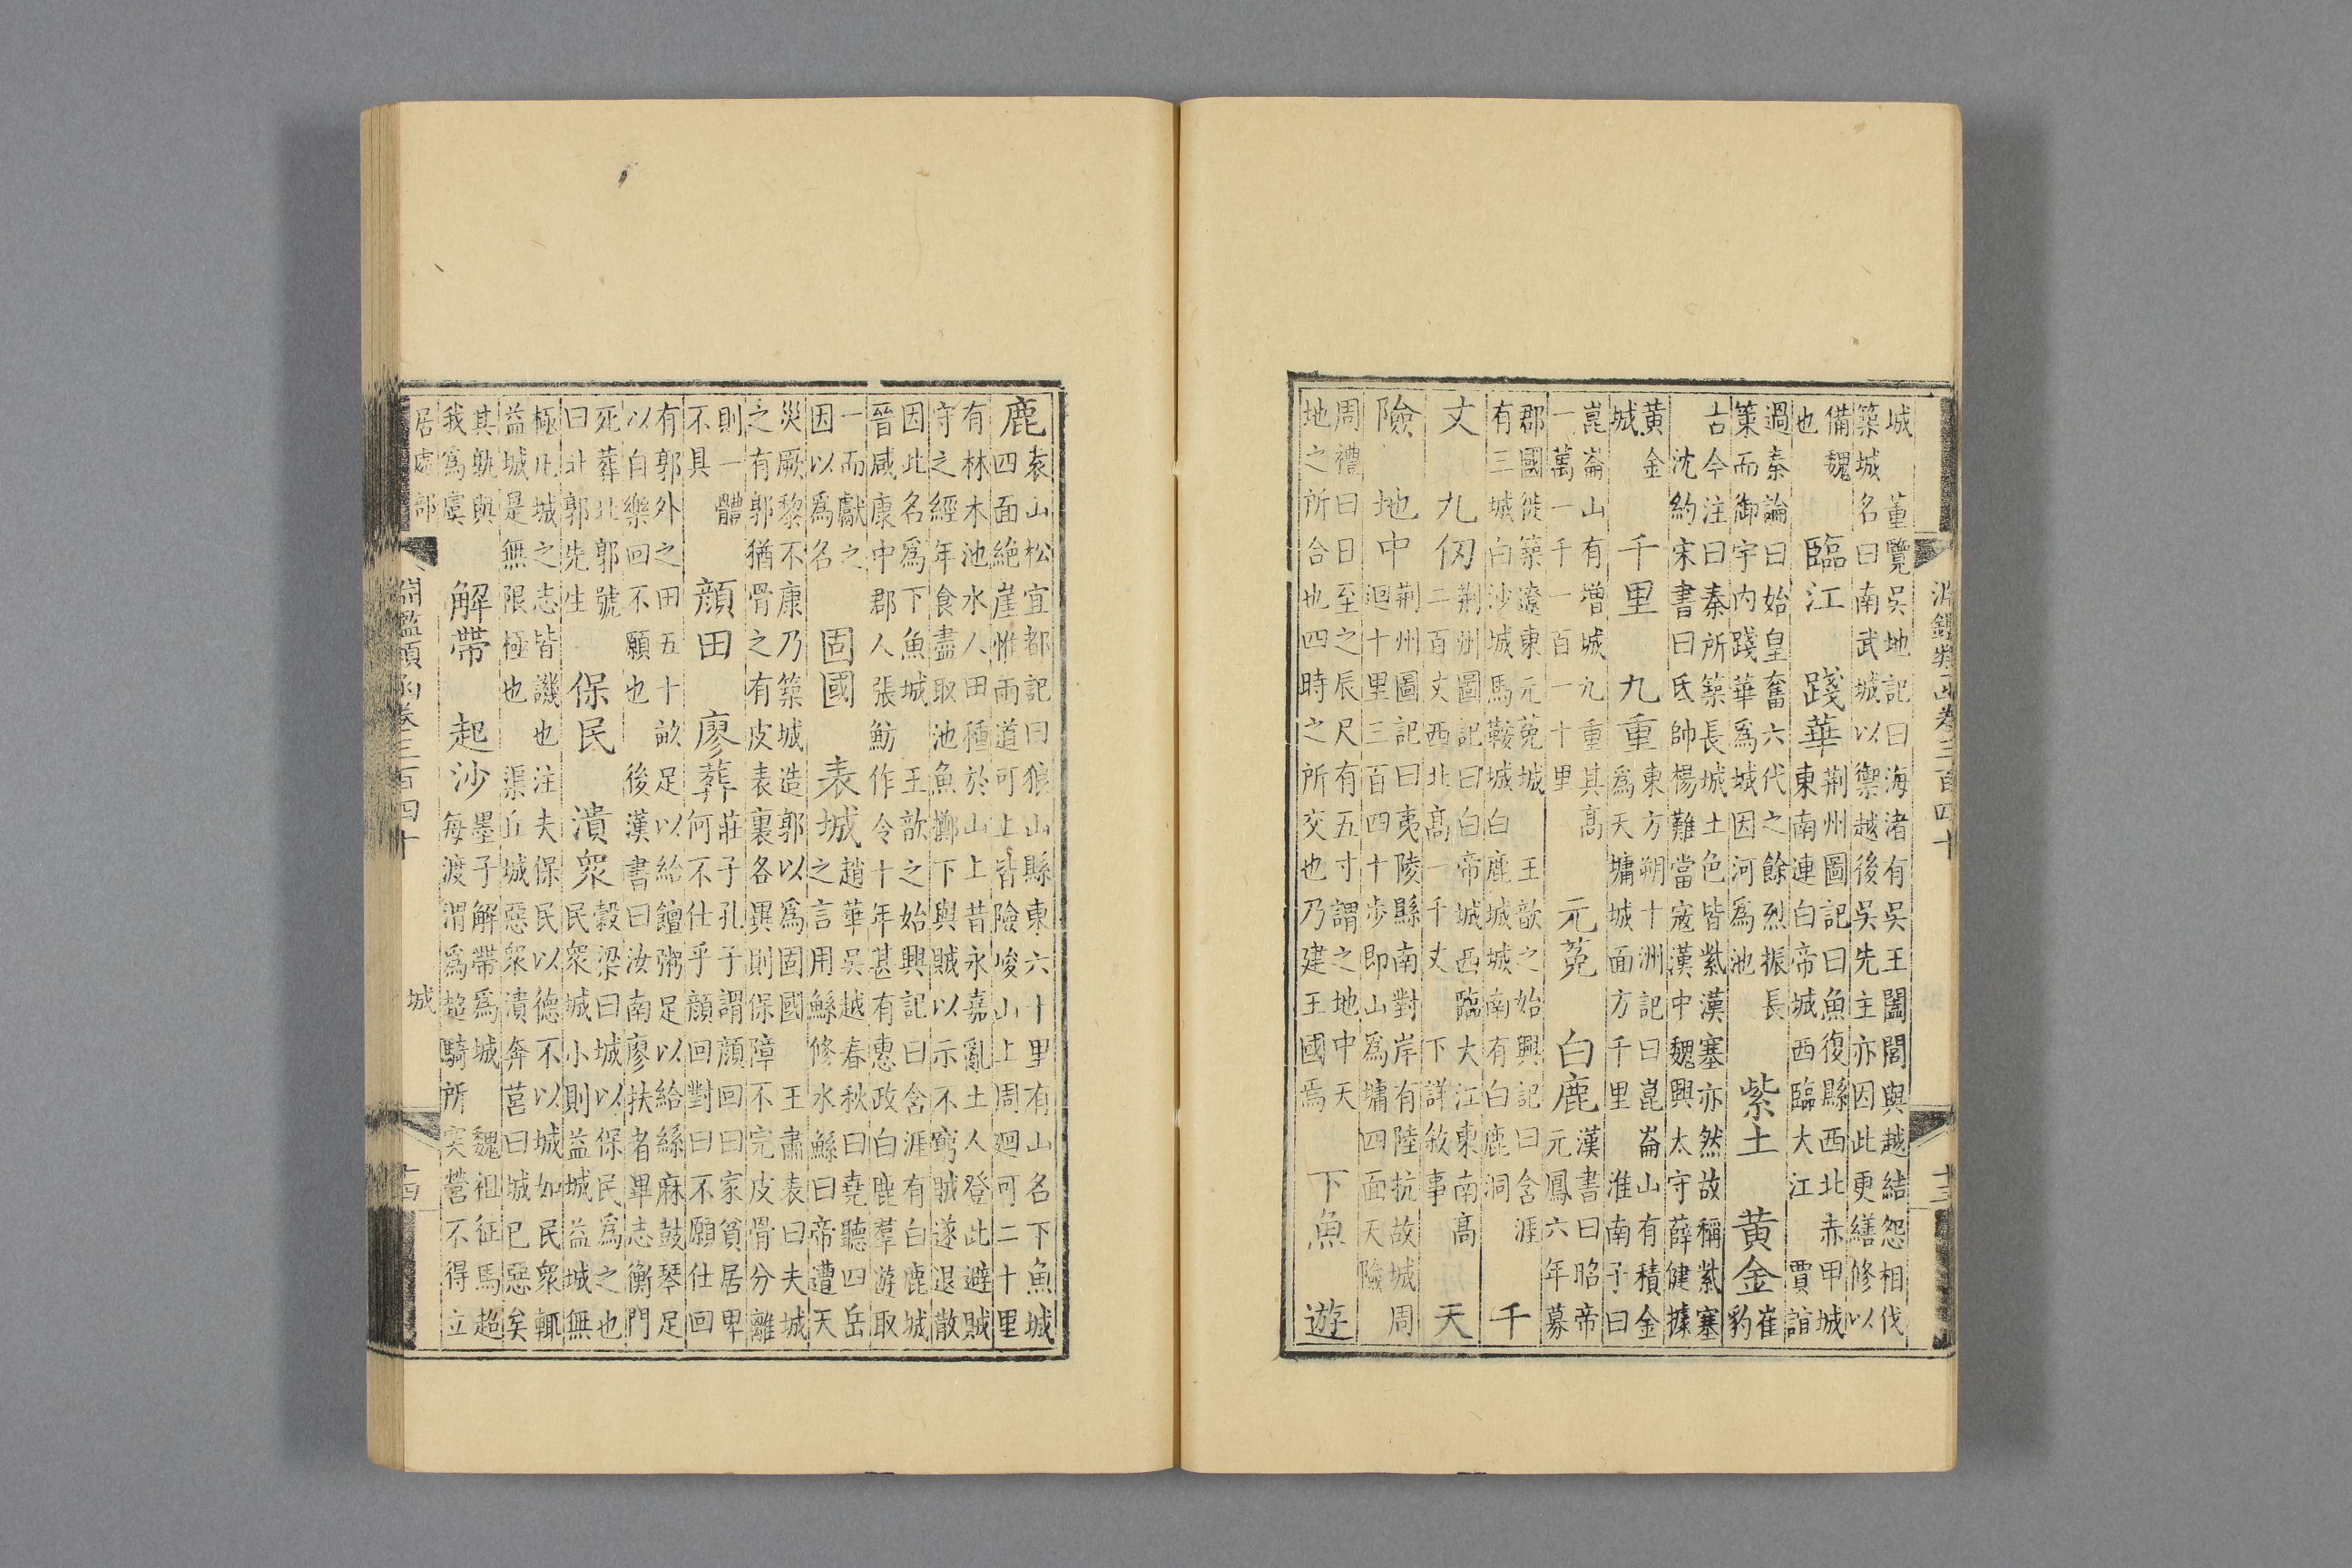 淵鑑類函卷三百四十
十三
城 董覽吳地記曰海渚有吳王闔閭與越結怨相伐
築城名曰南武城以禦越後吳先主亦因此更繕修以
備魏
也
臨江 踐華
荆州圖記曰魚復縣西北赤甲城
東南連白帝城西臨大江 賈誼
過秦論曰始皇奮六代之餘烈振長
策而御宇内踐華爲城因河爲池
紫土 黃金
崔
豹
古今注曰秦所築長城土色皆紫漢塞亦然故稱紫塞
沈約宋書曰氐帥楊難當寇漢中魏興太守薛健據
黃金
城
千里 九重
東方朔十洲記曰崑崙山有積金
爲天墉城面方千里 淮南子曰
崑崙山有增城九重其高
一萬一千一百一十里
元菟 白鹿
漢書曰昭帝
元鳳六年募
郡國徙築遼東元菟城 王歆之始興記曰含洭
有三城白沙城馬鞍城白鹿城城南有白鹿洞
千
丈 九仞
荆州圖記曰白帝城西臨大江東南高
二百丈西北高一千丈 下詳敘事
天
險 地中
荆州圖記曰夷陵縣南對岸有陸抗故城周
迴十里三百四十步即山爲墉四面天險
周禮曰日至之辰尺有五寸謂之地中天
地之所合也四時之所交也乃建王國焉
下魚 遊
鹿
袁山松宜都記曰狼山縣東六十里有山名下魚城
四面絶崖惟兩道可上皆險峻山上周迴可二十里
有林木池水人田種於山上昔永嘉亂土人登此避賊
守之經年食盡取池魚擲下與賊以示不窮賊遂退散
因此名爲下魚城 王歆之始興記曰含洭有白鹿城
晉咸康中郡人張魴作令十年甚有惠政白鹿羣遊取
一而獻之
因以爲名
固國 表城
趙華吳越春秋曰堯聽四岳
之言用鯀修水鯀曰帝遭天
災厥黎不康乃築城造郭以爲固國 王肅表曰夫城
之有郭猶骨之有皮表裏各異則保障不完皮骨分離
則一體
不具
顔田 廖葬
莊子孔子謂顔回曰家貧居卑
何不仕乎顔回對曰不願仕回
有郭外之田五十畝足以給饘粥足以給絲麻鼓琴足
以自樂回不願也 後漢書曰汝南廖扶者畢志衡門
死葬北郭號
曰北郭先生
保民 潰衆
穀梁曰城以保民爲之也
民衆城小則益城益城無
極凡城之志皆譏也注夫保民以德不以城如民衆輒
益城是無限極也 渠丘城惡衆潰奔莒曰城已惡矣
其孰與
我爲虞
解帶 起沙
墨子解帶爲城 魏祖征馬超
每渡渭爲超騎所突營不得立
居處部
淵鑑類函卷三百四十
城